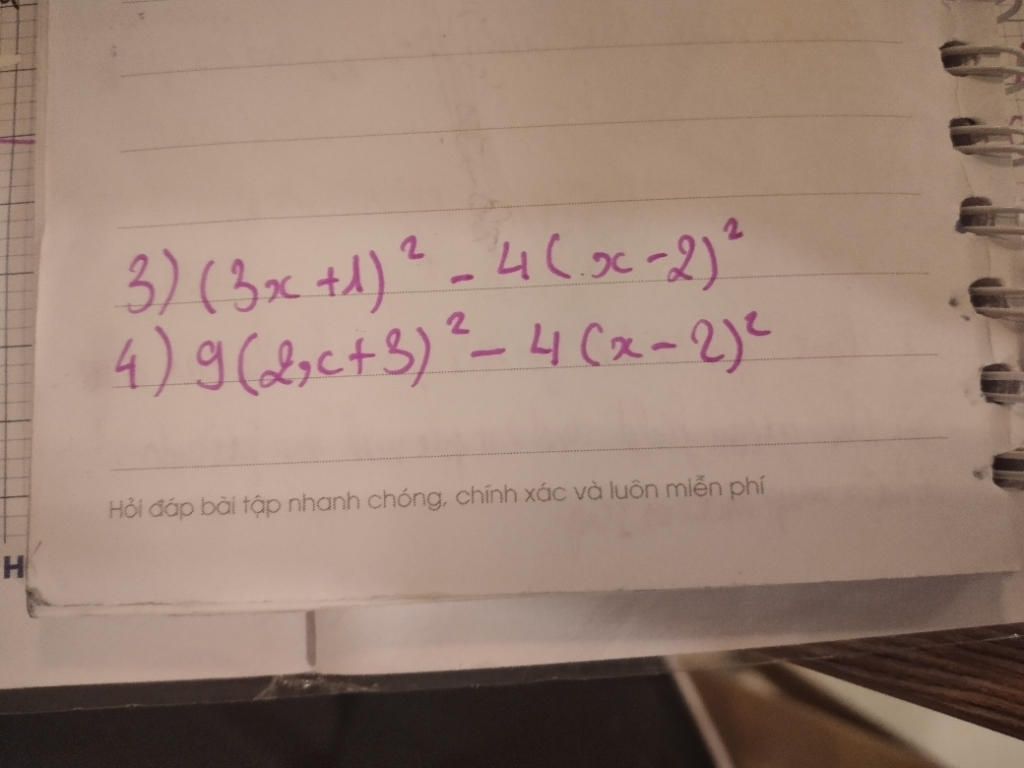 3) (3x+1)² - 4(x-2)²
4) 9(2x+3)² - 4(x-2)²
Hỏi đáp bài tập nhanh chóng, chính xác và luôn miễn phí
H